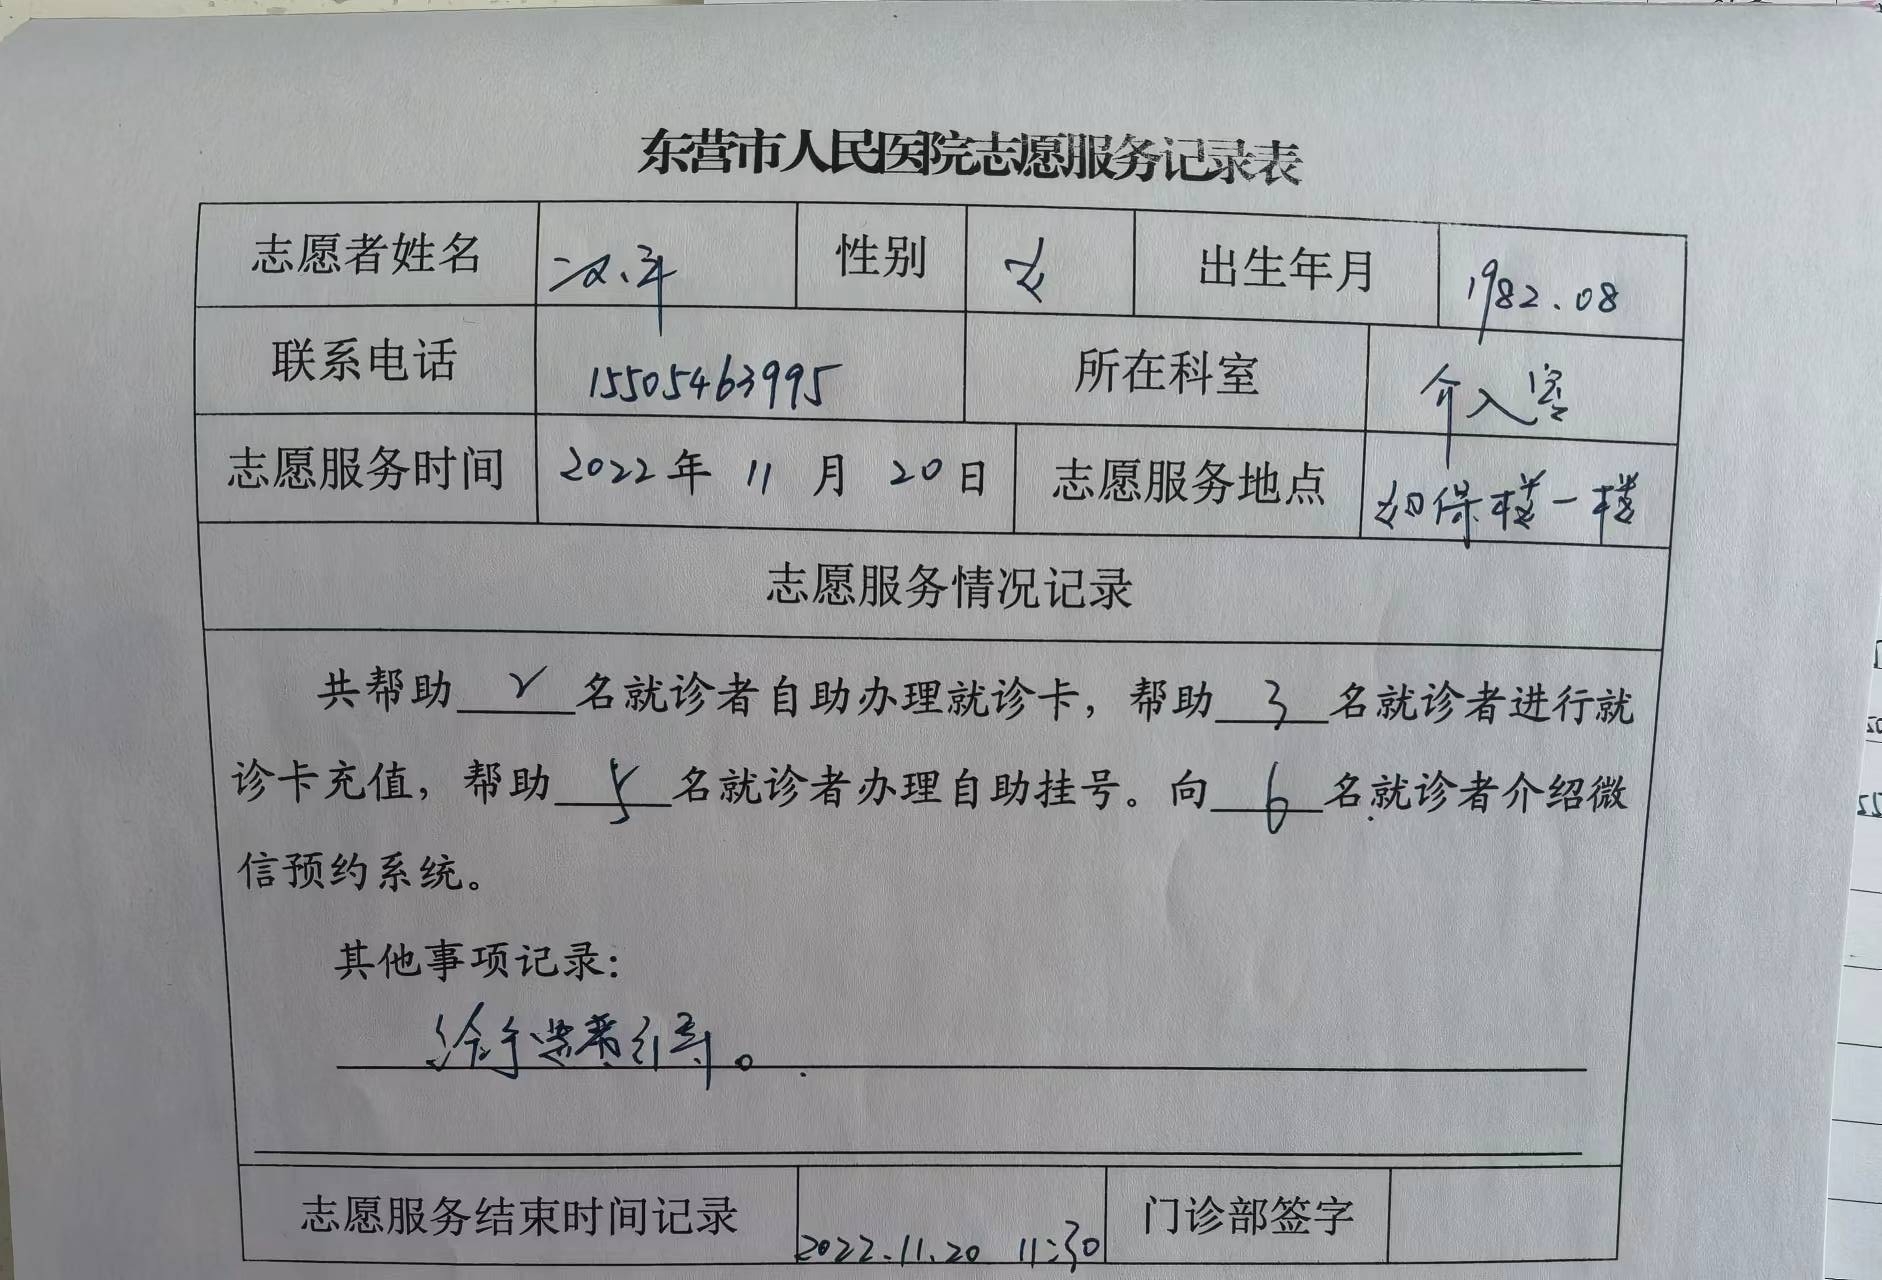 东营市人民医院志愿服务记录表
志愿者姓名 性别 女 出生年月 1982.08
联系电话 15505463995 所在科室 介入室
志愿服务时间 2022年 11 月 20日 志愿服务地点 妇保楼一楼
志愿服务情况记录
共帮助 2 名就诊者自助办理就诊卡，帮助 3 名就诊者进行就
诊卡充值，帮助 5 名就诊者办理自助挂号。向 6 名就诊者介绍微
信预约系统。
其他事项记录：
给予患者引导。
志愿服务结束时间记录 2022.11.20 11:30 门诊部签字